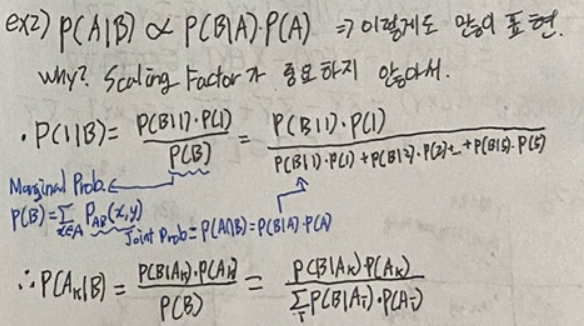 ex2) P(A|B) ∝ P(B|A)·P(A) ⇒ 이렇게도 많이 표현.
Why? Scaling Factor가 중요하지 않아서.
· P(1|B) = P(B|1)·P(1) / P(B) = P(B|1)·P(1) / P(B|1)·P(1) + P(B|2)·P(2) + … + P(B|5)·P(5)
Marginal Prob. ←
P(B) = Σ_{x∈A} P_{AB}(x,y)
Joint Prob = P(A∩B) = P(B|A)·P(A)
∴ P(A_k|B) = P(B|A_k)·P(A_k) / P(B) = P(B|A_k)·P(A_k) / Σ_i P(B|A_i)·P(A_i)